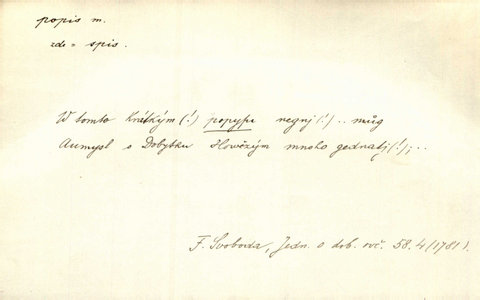 popis m.
zde = spis.
W tomto Krátkým (!) popypu negnj (!) .. můg
Aumysl o Dobytku Howězým mnoho gednatj (!), ..
F. Svoboda, Jedn. o dob. ovč. 58. 4 (1781).